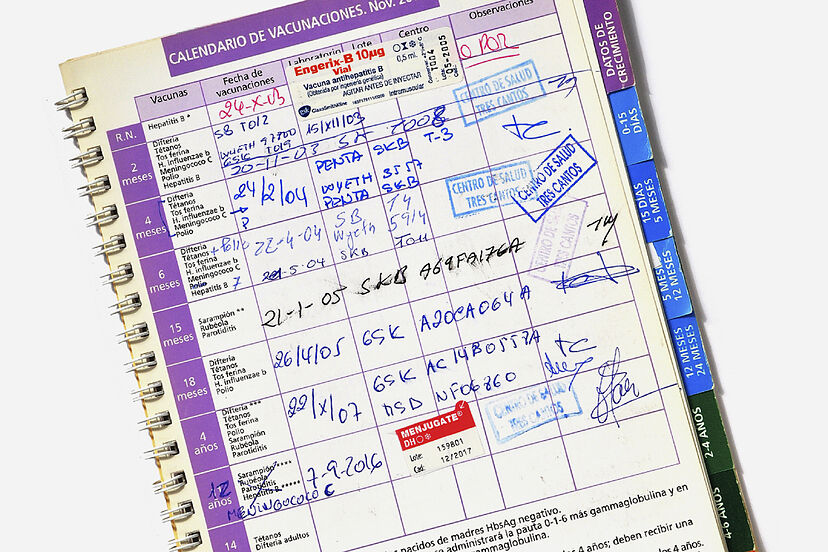 CALENDARIO DE VACUNACIONES. Nov.
Observaciones
Vacunas
Fecha de
vacunaciones
Laboratorio
Lote
Centro
Engerix-B 10µg
Vial
Vacuna antihepatitis B
(Obtenida por ingeniería genética)
AGITAR ANTES DE INYECTAR
GlaxoSmithKline
Intramuscular
0,5 ml.
T004
05-2005
R.N.
Hepatitis B *
24-X-03
O POR
CENTRO DE SALUD
TRES CANTOS
2
meses
Difteria
Tétanos
Tos ferina
H. influenzae b
Meningococo C
Polio
Hepatitis B
SB TO12 15/XII/03
WYETH
GSK TO19
20-11-03
T-3
4
meses
Difteria
Tétanos
Tos ferina
H. influenzae b
Meningococo C
Polio
24/2/04
PENTA SKB
WYETH 3557
PENTA SKB
CENTRO DE SALUD
TRES CANTOS
CENTRO DE SALUD
TRES CANTOS
6
meses
Difteria + Polio
Tétanos
Tos ferina
H. influenzae b
Meningococo C
Polio
Hepatitis B
22-4-04
SB T4
Wyeth 5914
SKB
5-04
CENTRO DE SALUD
TRES CANTOS
15
meses
Sarampión **
Rubéola
Parotiditis
21-1-05 SKB A69FA176A
18
meses
Difteria
Tétanos
Tos ferina
H. influenzae b
Polio
26/4/05 GSK A20CA064A
4
años
Difteria ***
Tétanos
Tos ferina
Polio
Sarampión
Rubéola
Parotiditis
22/X/07 GSK AC14B0557A
MSD NF06860
CENTRO DE SALUD
TRES CANTOS
12
años
Sarampión ****
Rubéola
Parotiditis
Hepatitis B *****
MENINGOCOCO C
7-9-2016
MENJUGATE
Lote: 159801
Cad: 12/2017
14
Tétanos
Difteria adultos
nacidos de madres HbsAg negativo.
se administrará la pauta 0-1-6 más gammaglobulina y en
gammaglobulina.
los 4 años; deben recibir una
4 años.
DATOS DE
CRECIMIENTO
0-15
DÍAS
15 DÍAS
5 MESES
5 MESES
12 MESES
12 MESES
24 MESES
2-4 AÑOS
4-6 AÑOS